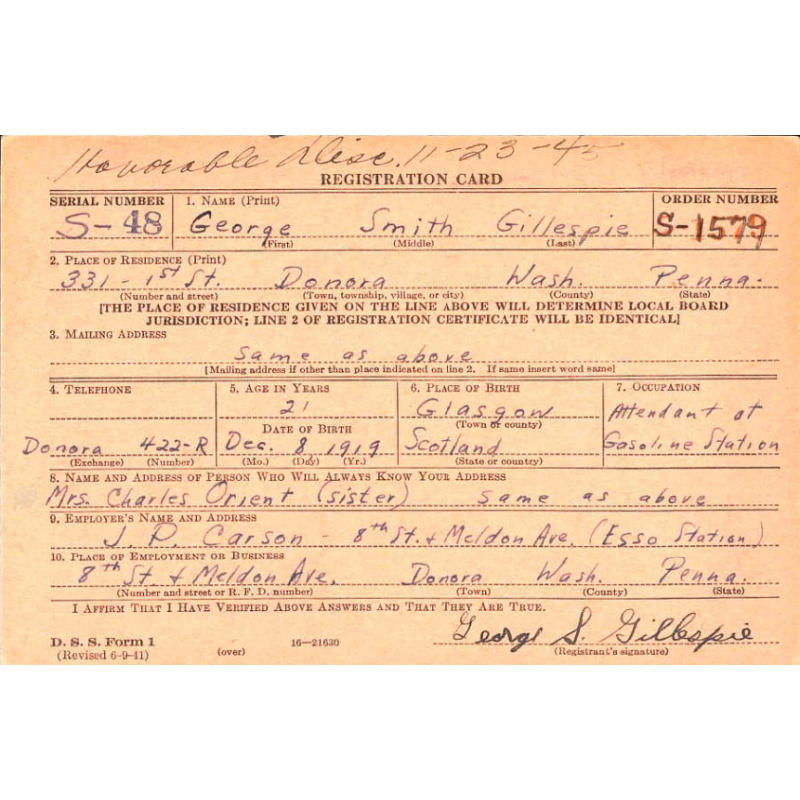 Honorable Disc. 11-23-45
REGISTRATION CARD
SERIAL NUMBER 1. NAME (Print) ORDER NUMBER
S-48 George Smith Gillespie S-1579
(First) (Middle) (Last)
2. PLACE OF RESIDENCE (Print)
331 - 1st St. Donora Wash. Penna.
(Number and street) (Town, township, village, or city) (County) (State)
[THE PLACE OF RESIDENCE GIVEN ON THE LINE ABOVE WILL DETERMINE LOCAL BOARD
JURISDICTION; LINE 2 OF REGISTRATION CERTIFICATE WILL BE IDENTICAL]
3. MAILING ADDRESS
same as above
[Mailing address if other than place indicated on line 2. If same insert word same]
4. TELEPHONE 5. AGE IN YEARS 6. PLACE OF BIRTH 7. OCCUPATION
21 Glasgow Attendant at
DATE OF BIRTH (Town or county)
Donora 422-R Dec. 8 1919 Scotland Gasoline Station
(Exchange) (Number) (Mo.) (Day) (Yr.) (State or country)
8. NAME AND ADDRESS OF PERSON WHO WILL ALWAYS KNOW YOUR ADDRESS
Mrs. Charles Orient (sister) same as above
9. EMPLOYER'S NAME AND ADDRESS
J. P. Carson - 8th St. + Meldon Ave. (Esso Station)
10. PLACE OF EMPLOYMENT OR BUSINESS
8th St. + Meldon Ave. Donora Wash. Penna.
(Number and street or R. F. D. number) (Town) (County) (State)
I AFFIRM THAT I HAVE VERIFIED ABOVE ANSWERS AND THAT THEY ARE TRUE.
George S. Gillespie
D. S. S. Form 1 16-21630
(Revised 6-9-41) (over) (Registrant's signature)